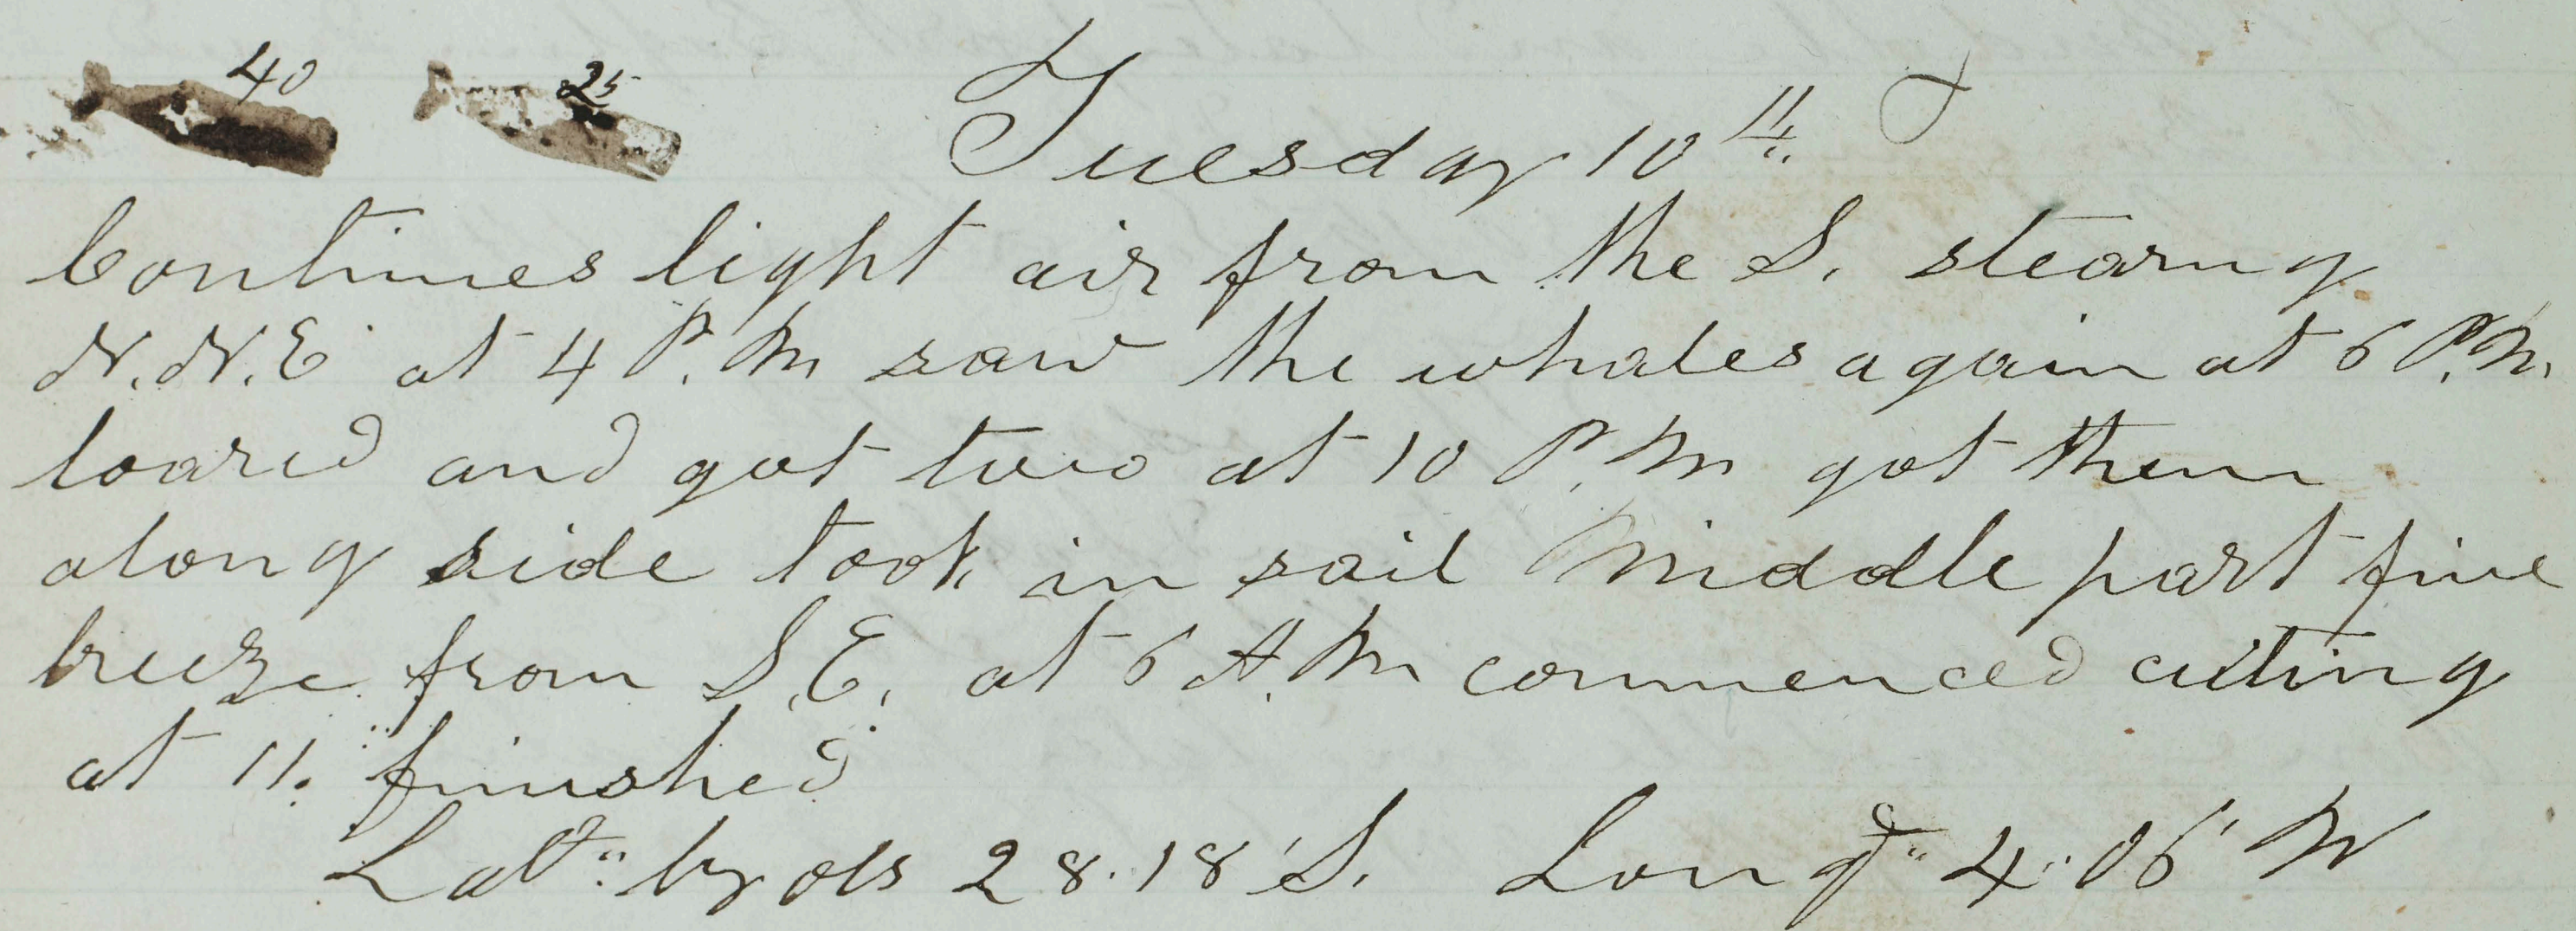 40 25 Tuesday 10th
Continues light air from the S. stearng
N.N.E at 4 P.M saw the whales again at 6 P.M.
loared and got two at 10 P.M got them
along side took in sail Middle part fine
breeze from S.E. at 6 A.M commenced cuting
at 11. finished
Latd by obs 28.18' S. Longd 4.06' W